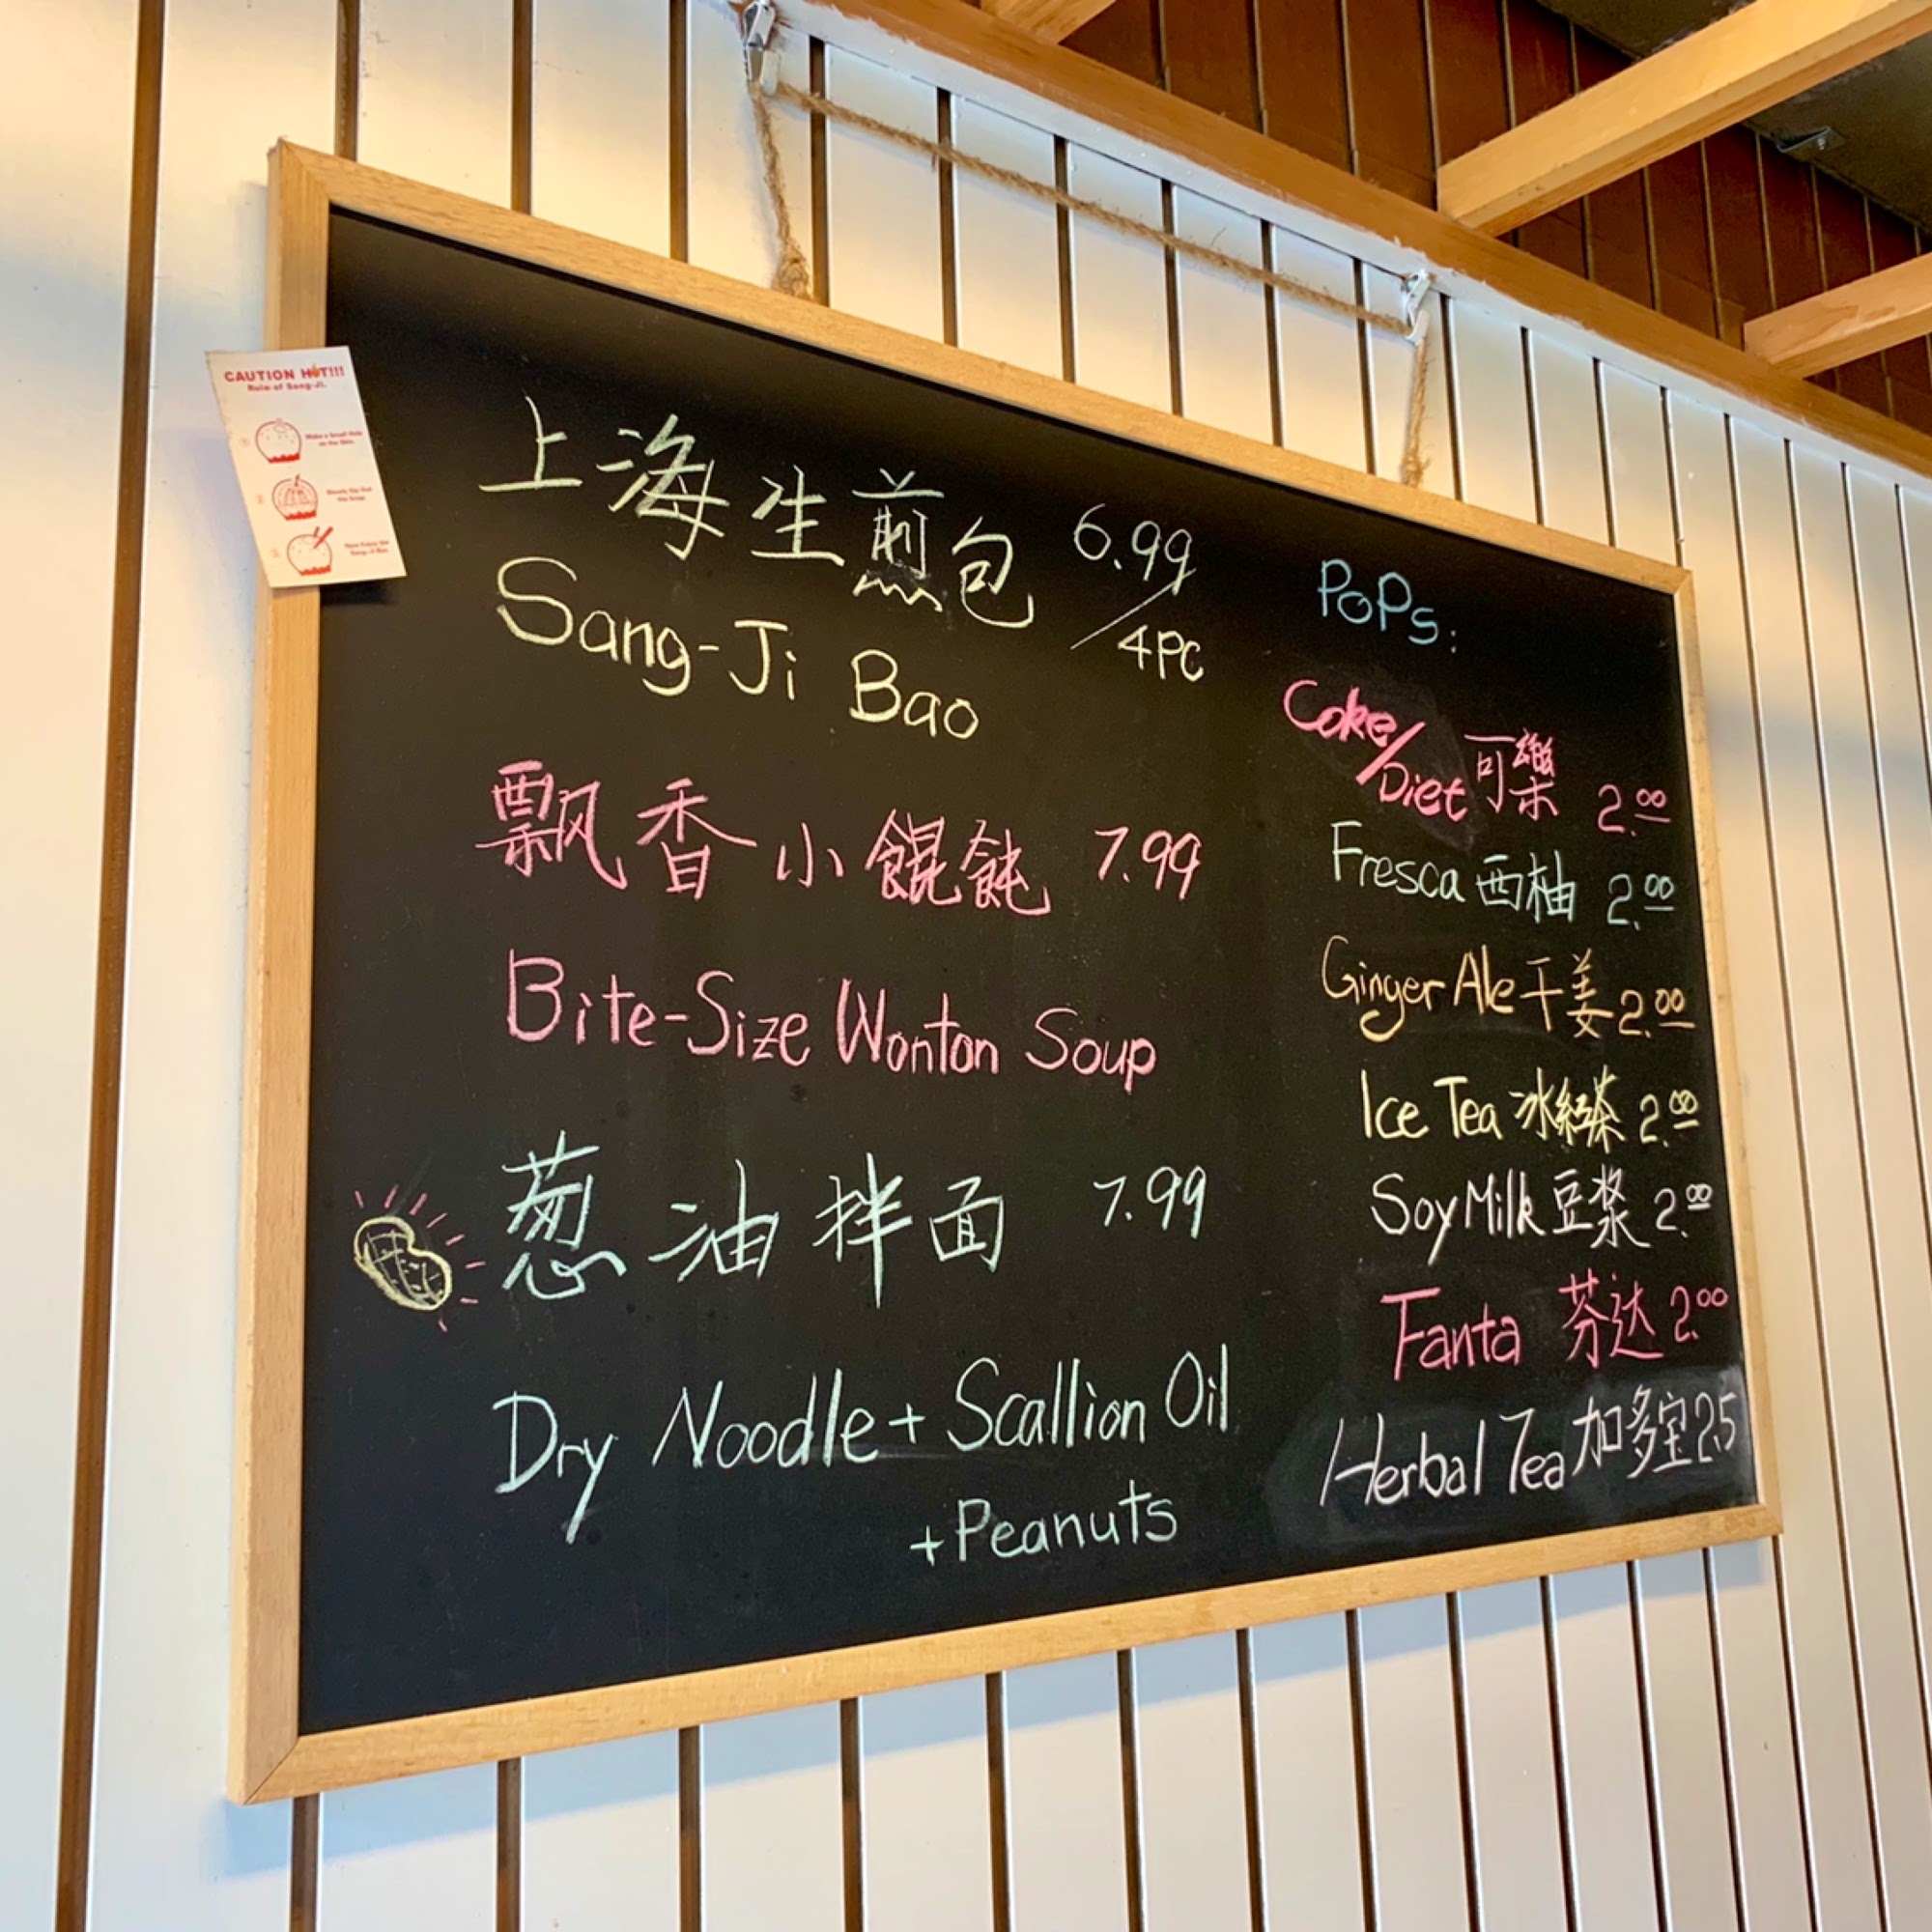 CAUTION HOT!!!
Rule of Sang-Ji.
① Make a Small Hole
on the Skin.
② Slowly Sip Out
the Soup
③ Now Enjoy the
Sang-Ji Bao.
上海生煎包 6.99
/4PC
Sang-Ji Bao
飘香小餛飩 7.99
Bite-Size Wonton Soup
葱油拌面 7.99
Dry Noodle + Scallion Oil
+ Peanuts
POPs:
Coke/Diet 可樂 2.00
Fresca 西柚 2.00
Ginger Ale 干姜 2.00
Ice Tea 冰紅茶 2.00
Soy Milk 豆浆 2.00
Fanta 芬达 2.00
Herbal Tea 加多宝 2.5